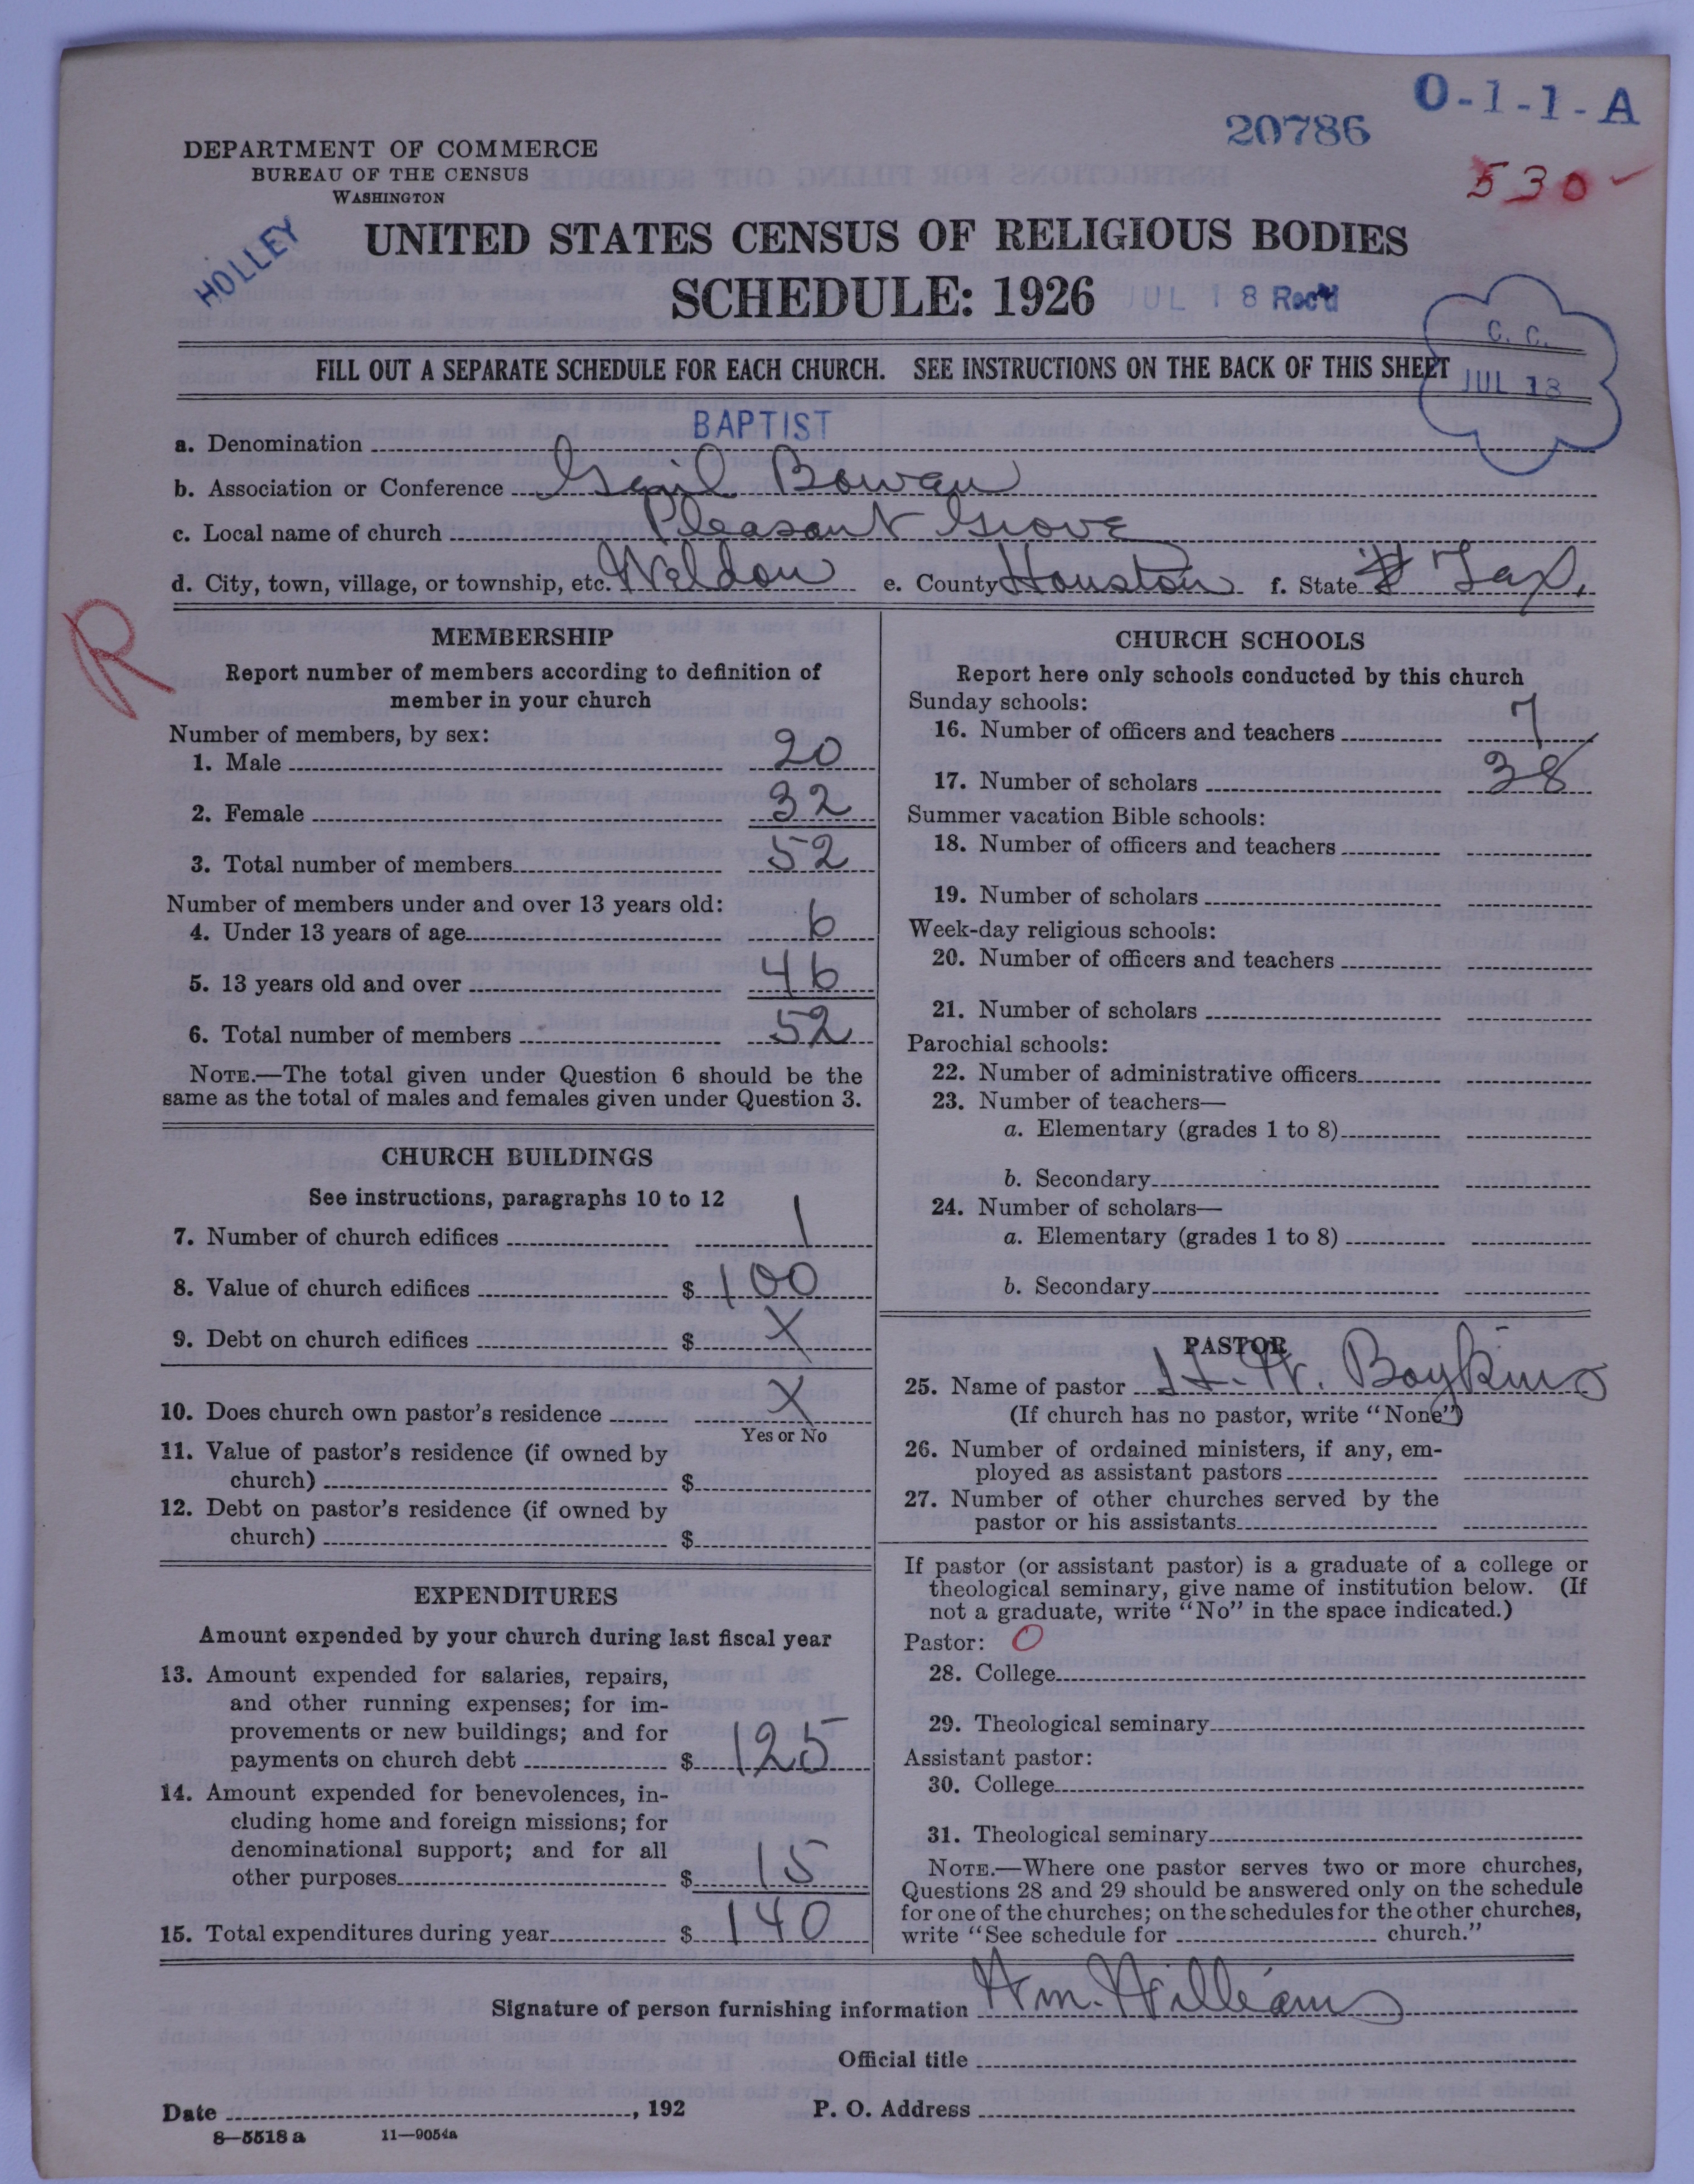 O-1-1-A
20786
530
DEPARTMENT OF COMMERCE
BUREAU OF THE CENSUS
WASHINGTON
HOLLEY
UNITED STATES CENSUS OF RELIGIOUS BODIES
SCHEDULE: 1926
JUL 18 Rec'd
C. C.
JUL 18
FILL OUT A SEPARATE SCHEDULE FOR EACH CHURCH. SEE INSTRUCTIONS ON THE BACK OF THIS SHEET
a. Denomination BAPTIST
b. Association or Conference Genl Bowan
c. Local name of church Pleasant Grove
d. City, town, village, or township, etc. Weldon e. County Houston f. State Tax.
R
MEMBERSHIP
Report number of members according to definition of
member in your church
Number of members, by sex:
1. Male 20
2. Female 32
3. Total number of members 52
Number of members under and over 13 years old:
4. Under 13 years of age 6
5. 13 years old and over 46
6. Total number of members 52
NOTE.—The total given under Question 6 should be the
same as the total of males and females given under Question 3.
CHURCH BUILDINGS
See instructions, paragraphs 10 to 12
7. Number of church edifices 1
8. Value of church edifices $ 100
9. Debt on church edifices $ X
10. Does church own pastor's residence X
Yes or No
11. Value of pastor's residence (if owned by
church) $
12. Debt on pastor's residence (if owned by
church) $
EXPENDITURES
Amount expended by your church during last fiscal year
13. Amount expended for salaries, repairs,
and other running expenses; for im-
provements or new buildings; and for
payments on church debt $ 125
14. Amount expended for benevolences, in-
cluding home and foreign missions; for
denominational support; and for all
other purposes $ 15
15. Total expenditures during year $ 140
CHURCH SCHOOLS
Report here only schools conducted by this church
Sunday schools:
16. Number of officers and teachers 7
17. Number of scholars 38
Summer vacation Bible schools:
18. Number of officers and teachers
19. Number of scholars
Week-day religious schools:
20. Number of officers and teachers
21. Number of scholars
Parochial schools:
22. Number of administrative officers
23. Number of teachers—
a. Elementary (grades 1 to 8)
b. Secondary
24. Number of scholars—
a. Elementary (grades 1 to 8)
b. Secondary
PASTOR
25. Name of pastor H. W. Boykins
(If church has no pastor, write "None")
26. Number of ordained ministers, if any, em-
ployed as assistant pastors
27. Number of other churches served by the
pastor or his assistants
If pastor (or assistant pastor) is a graduate of a college or
theological seminary, give name of institution below. (If
not a graduate, write "No" in the space indicated.)
Pastor: O
28. College
29. Theological seminary
Assistant pastor:
30. College
31. Theological seminary
NOTE.—Where one pastor serves two or more churches,
Questions 28 and 29 should be answered only on the schedule
for one of the churches; on the schedules for the other churches,
write "See schedule for church."
Signature of person furnishing information Wm. Williams
Official title
Date , 192 P. O. Address
8—5518 a 11—9054a